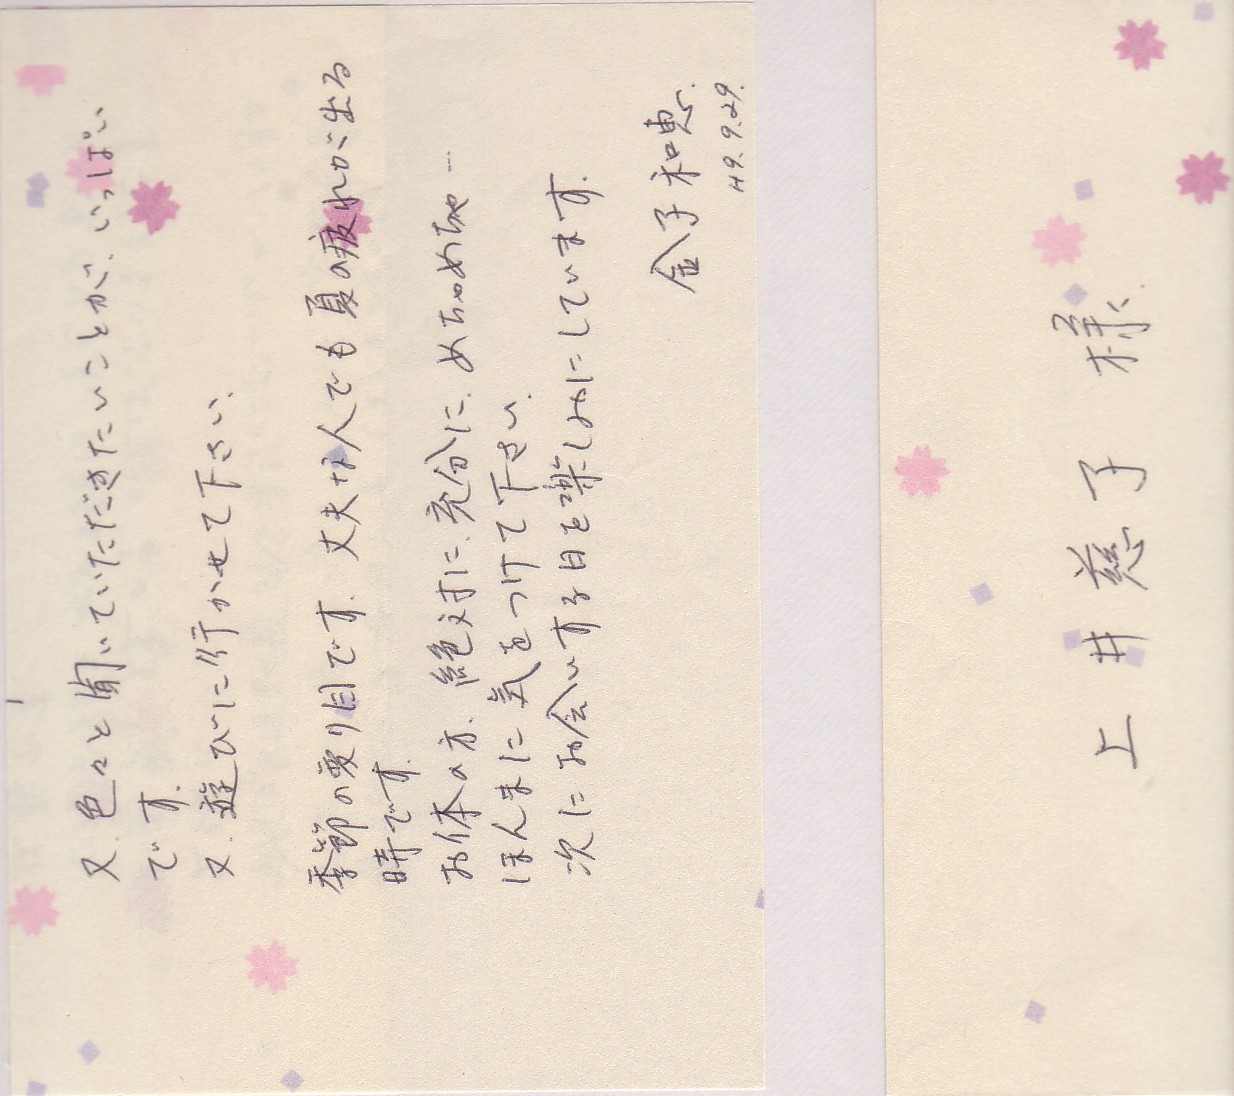 又、色々と聞いていただきたいことが、いっぱい
です。
又、遊びに行かせて下さい。
季節の変り目です。丈夫な人でも夏の疲れが出る
時です。
お体の方、絶対に、充分に、めちゃめちゃ…
ほんまに気をつけて下さい。
次にお会いする日を楽しみにしています。
金子和恵.
H9.9.29.
上井慈子 様